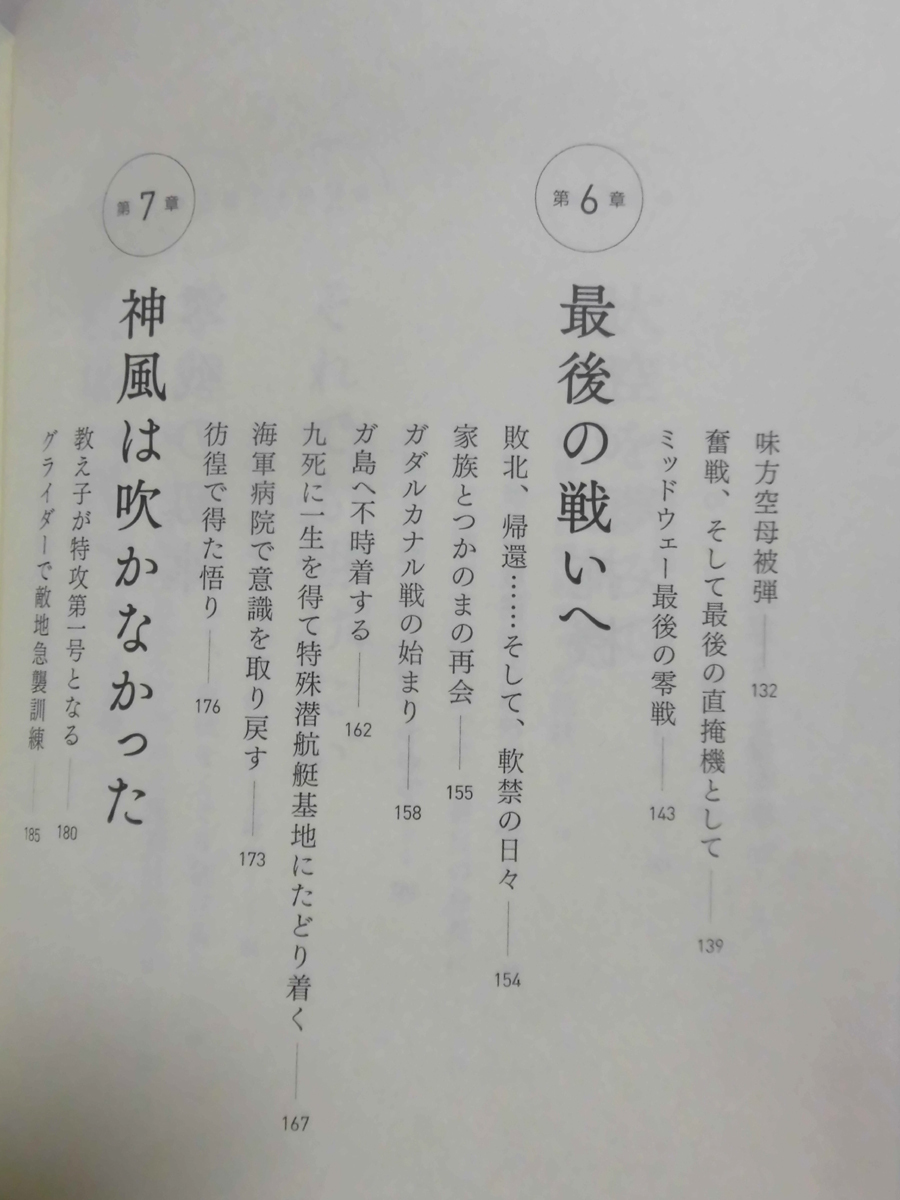 味方空母被弾 132
奮戦、そして最後の直掩機として 139
ミッドウェー最後の零戦 143
第6章
最後の戦いへ
敗北、帰還……そして、軟禁の日々 154
家族とつかのまの再会 155
ガダルカナル戦の始まり 158
ガ島へ不時着する 162
九死に一生を得て特殊潜航艇基地にたどり着く 167
海軍病院で意識を取り戻す 173
彷徨で得た悟り 176
第7章
神風は吹かなかった
教え子が特攻第一号となる 180
グライダーで敵地急襲訓練 185